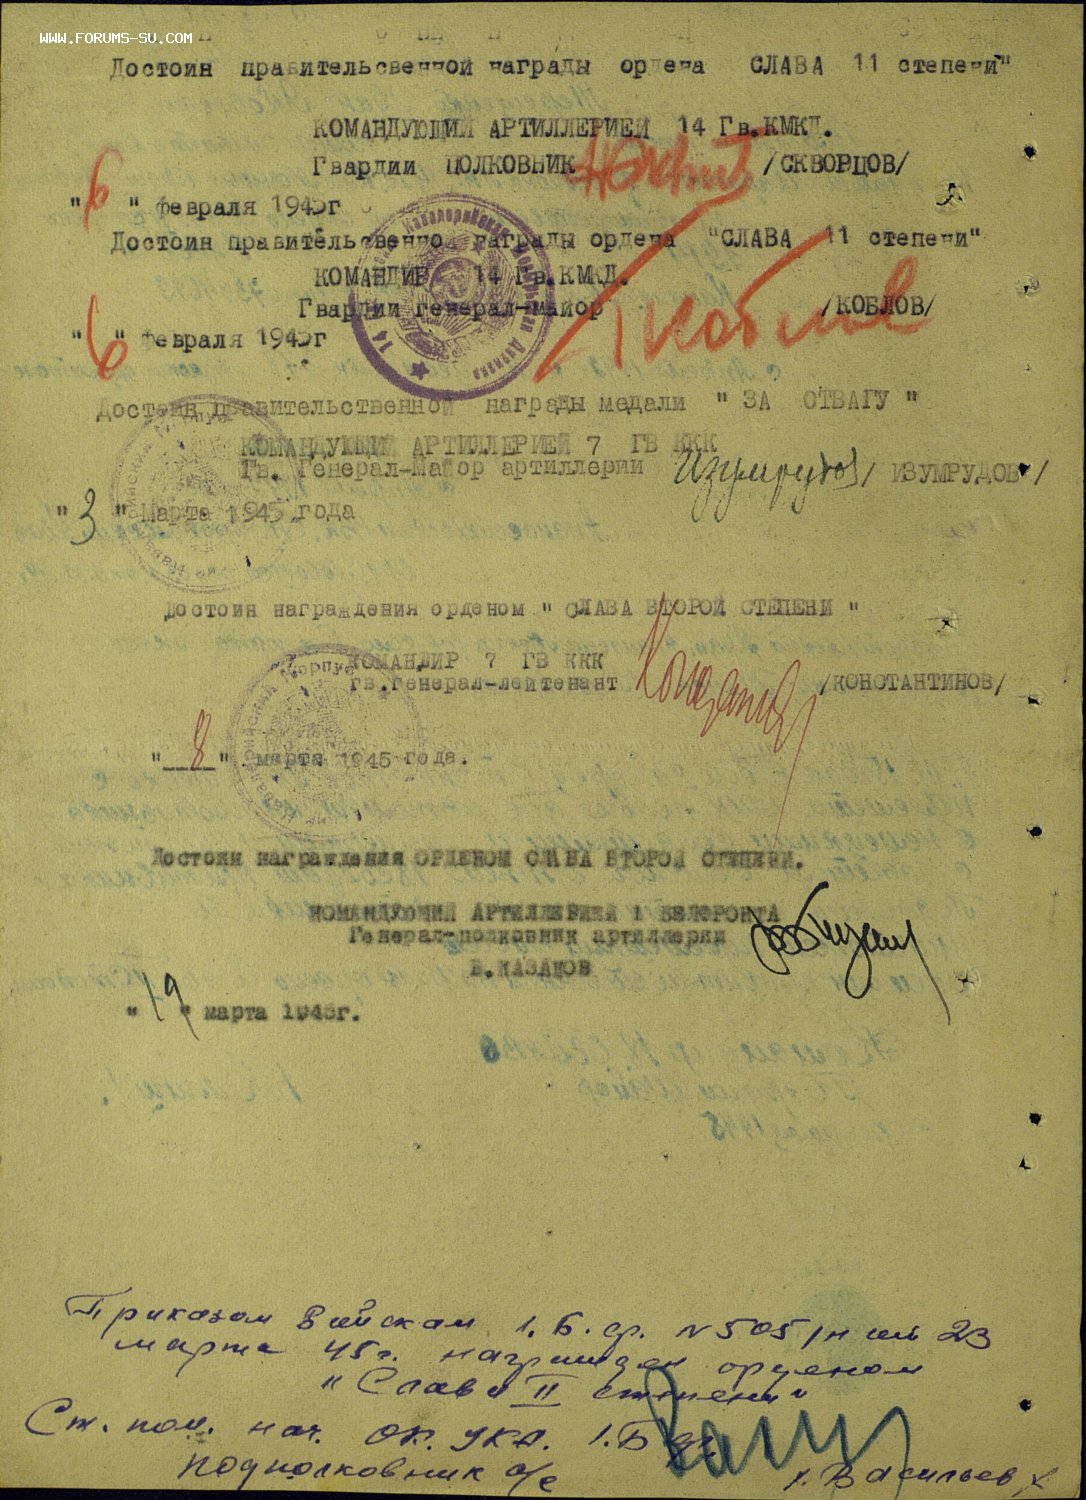 WWW.FORUMS-SU.COM
Достоин правительсвенной награды ордена СЛАВА 11 степени"
КОМАНДУЮЩИЙ АРТИЛЛЕРИЕЙ 14 Гв.КМКД.
Гвардии ПОЛКОВНИК /СКВОРЦОВ/
" 6 " февраля 1945г
Достоин правительсвенно награды ордена "СЛАВА 11 степени"
КОМАНДИР 14 Гв.КМКД.
Гвардии генерал-майор Коблов /КОБЛОВ/
" 6 " февраля 1945г
Достоин правительственной награды медали " ЗА ОТВАГУ "
КОМАНДУЮЩИЙ АРТИЛЛЕРИЕЙ 7 ГВ ККК
Гв. Генерал-Майор артиллерии Изумрудов / ИЗУМРУДОВ /
" 3 " Марта 1945 года
Достоин награждения орденом " СЛАВА ВТОРОЙ СТЕПЕНИ "
КОМАНДИР 7 ГВ ККК
гв.генерал-лейтенант /КОНСТАНТИНОВ/
" 8 " марта 1945 года.
Достоин награждения ОРДЕНОМ СЛАВА ВТОРОЙ СТЕПЕНИ.
КОМАНДУЮЩИЙ АРТИЛЛЕРИЕЙ 1 БЕЛФРОНТА
Генерал-полковник артиллерии
В.КАЗАКОВ
" 19 " марта 1945г.
Приказом Войскам 1.Б.ф. N505/н от 23
марта 45г. награжден орденом
"Слава II степени"
Ст. пом. нач. ОК. УКА. 1.Б.ф.
подполковник а/с Васильев